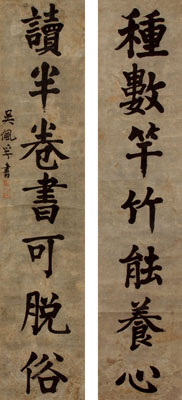 種數竿竹能養心
讀半卷書可脫俗
吳佩孚書